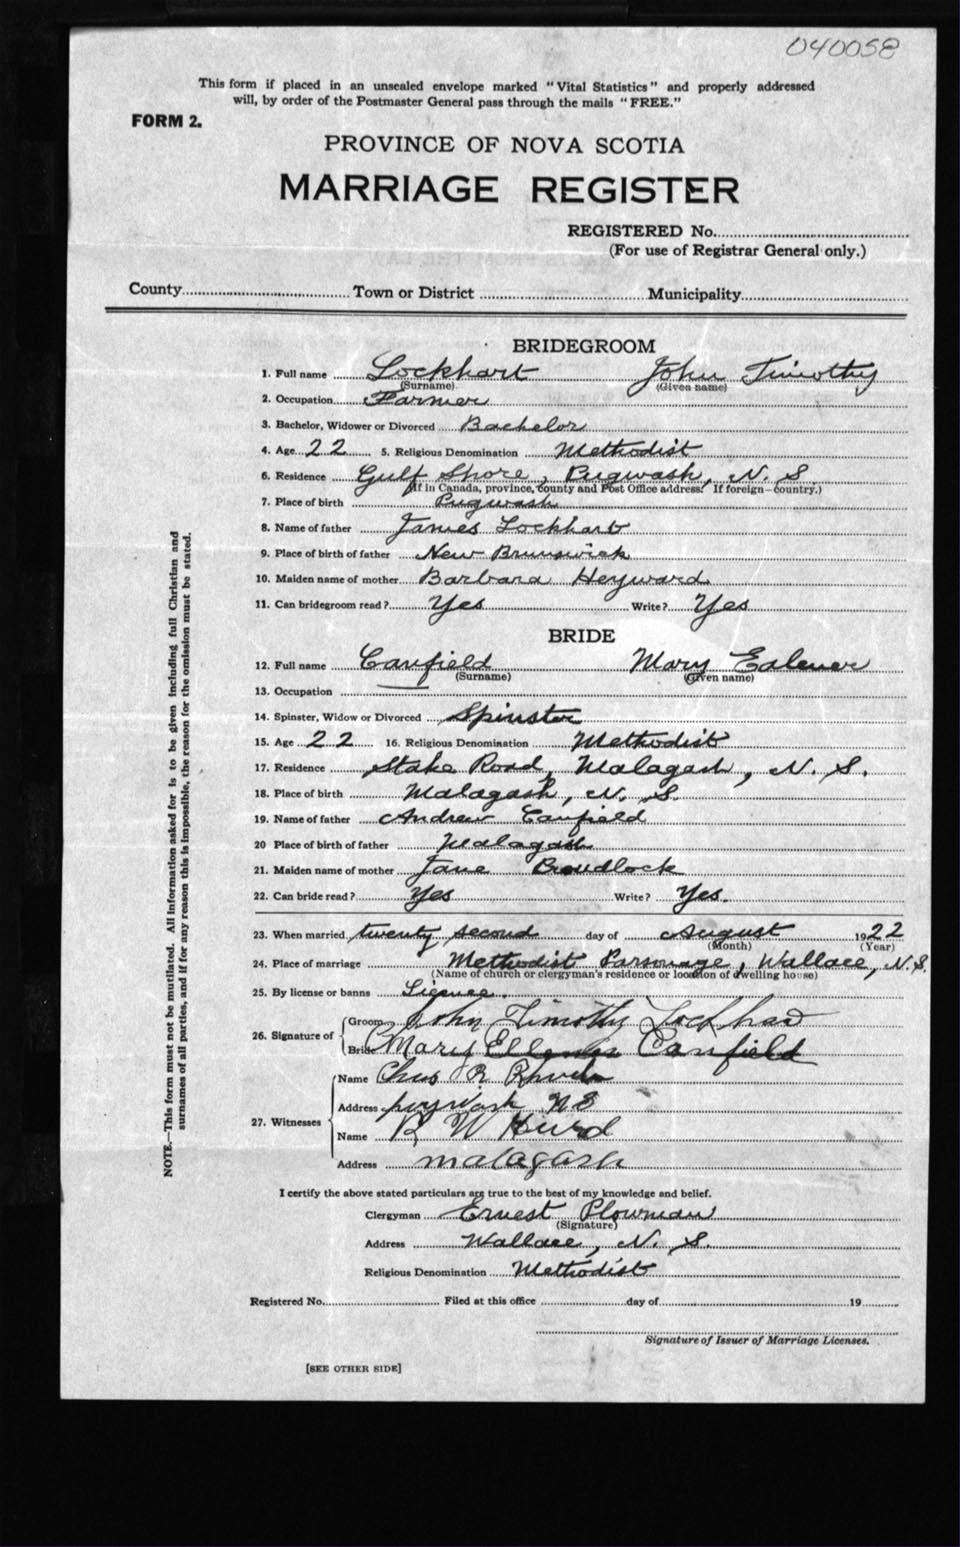 040058
This form if placed in an unsealed envelope marked "Vital Statistics" and properly addressed
will, by order of the Postmaster General pass through the mails "FREE."
FORM 2.
PROVINCE OF NOVA SCOTIA
MARRIAGE REGISTER
REGISTERED No.
(For use of Registrar General only.)
County Town or District Municipality
BRIDEGROOM
1. Full name Lockhart John Timothy
(Surname) (Given name)
2. Occupation Farmer
3. Bachelor, Widower or Divorced Bachelor
4. Age 22 5. Religious Denomination Methodist
6. Residence Gulf Shore, Pugwash, N. S.
(If in Canada, province, county and Post Office address. If foreign—country.)
7. Place of birth Pugwash
8. Name of father James Lockhart
9. Place of birth of father New Brunswick
10. Maiden name of mother Barbara Heyward
11. Can bridegroom read? Yes Write? Yes
BRIDE
12. Full name Canfield Mary Ealener
(Surname) (Given name)
13. Occupation
14. Spinster, Widow or Divorced Spinster
15. Age 22 16. Religious Denomination Methodist
17. Residence Stake Road, Malagash, N. S.
18. Place of birth Malagash, N. S.
19. Name of father Andrew Canfield
20 Place of birth of father Malagash
21. Maiden name of mother Jane Broudlock
22. Can bride read? Yes Write? Yes.
23. When married twenty second day of August 1922
(Month) (Year)
24. Place of marriage Methodist Parsonage, Wallace, N.S.
(Name of church or clergyman's residence or location of dwelling house)
25. By license or banns Licence.
26. Signature of Groom John Timothy Lockhart
Bride Mary Canfield
27. Witnesses
Name Chas R
Address pugwash NS
Name R W Hurd
Address malagash
I certify the above stated particulars are true to the best of my knowledge and belief.
Clergyman Ernest Plowman
(Signature)
Address Wallace, N. S.
Religious Denomination Methodist
Registered No. Filed at this office day of 19
Signature of Issuer of Marriage Licenses.
[SEE OTHER SIDE]
NOTE.—This form must not be mutilated. All information asked for is to be given including full Christian and
surnames of all parties, and if for any reason this is impossible, the reason for the omission must be stated.